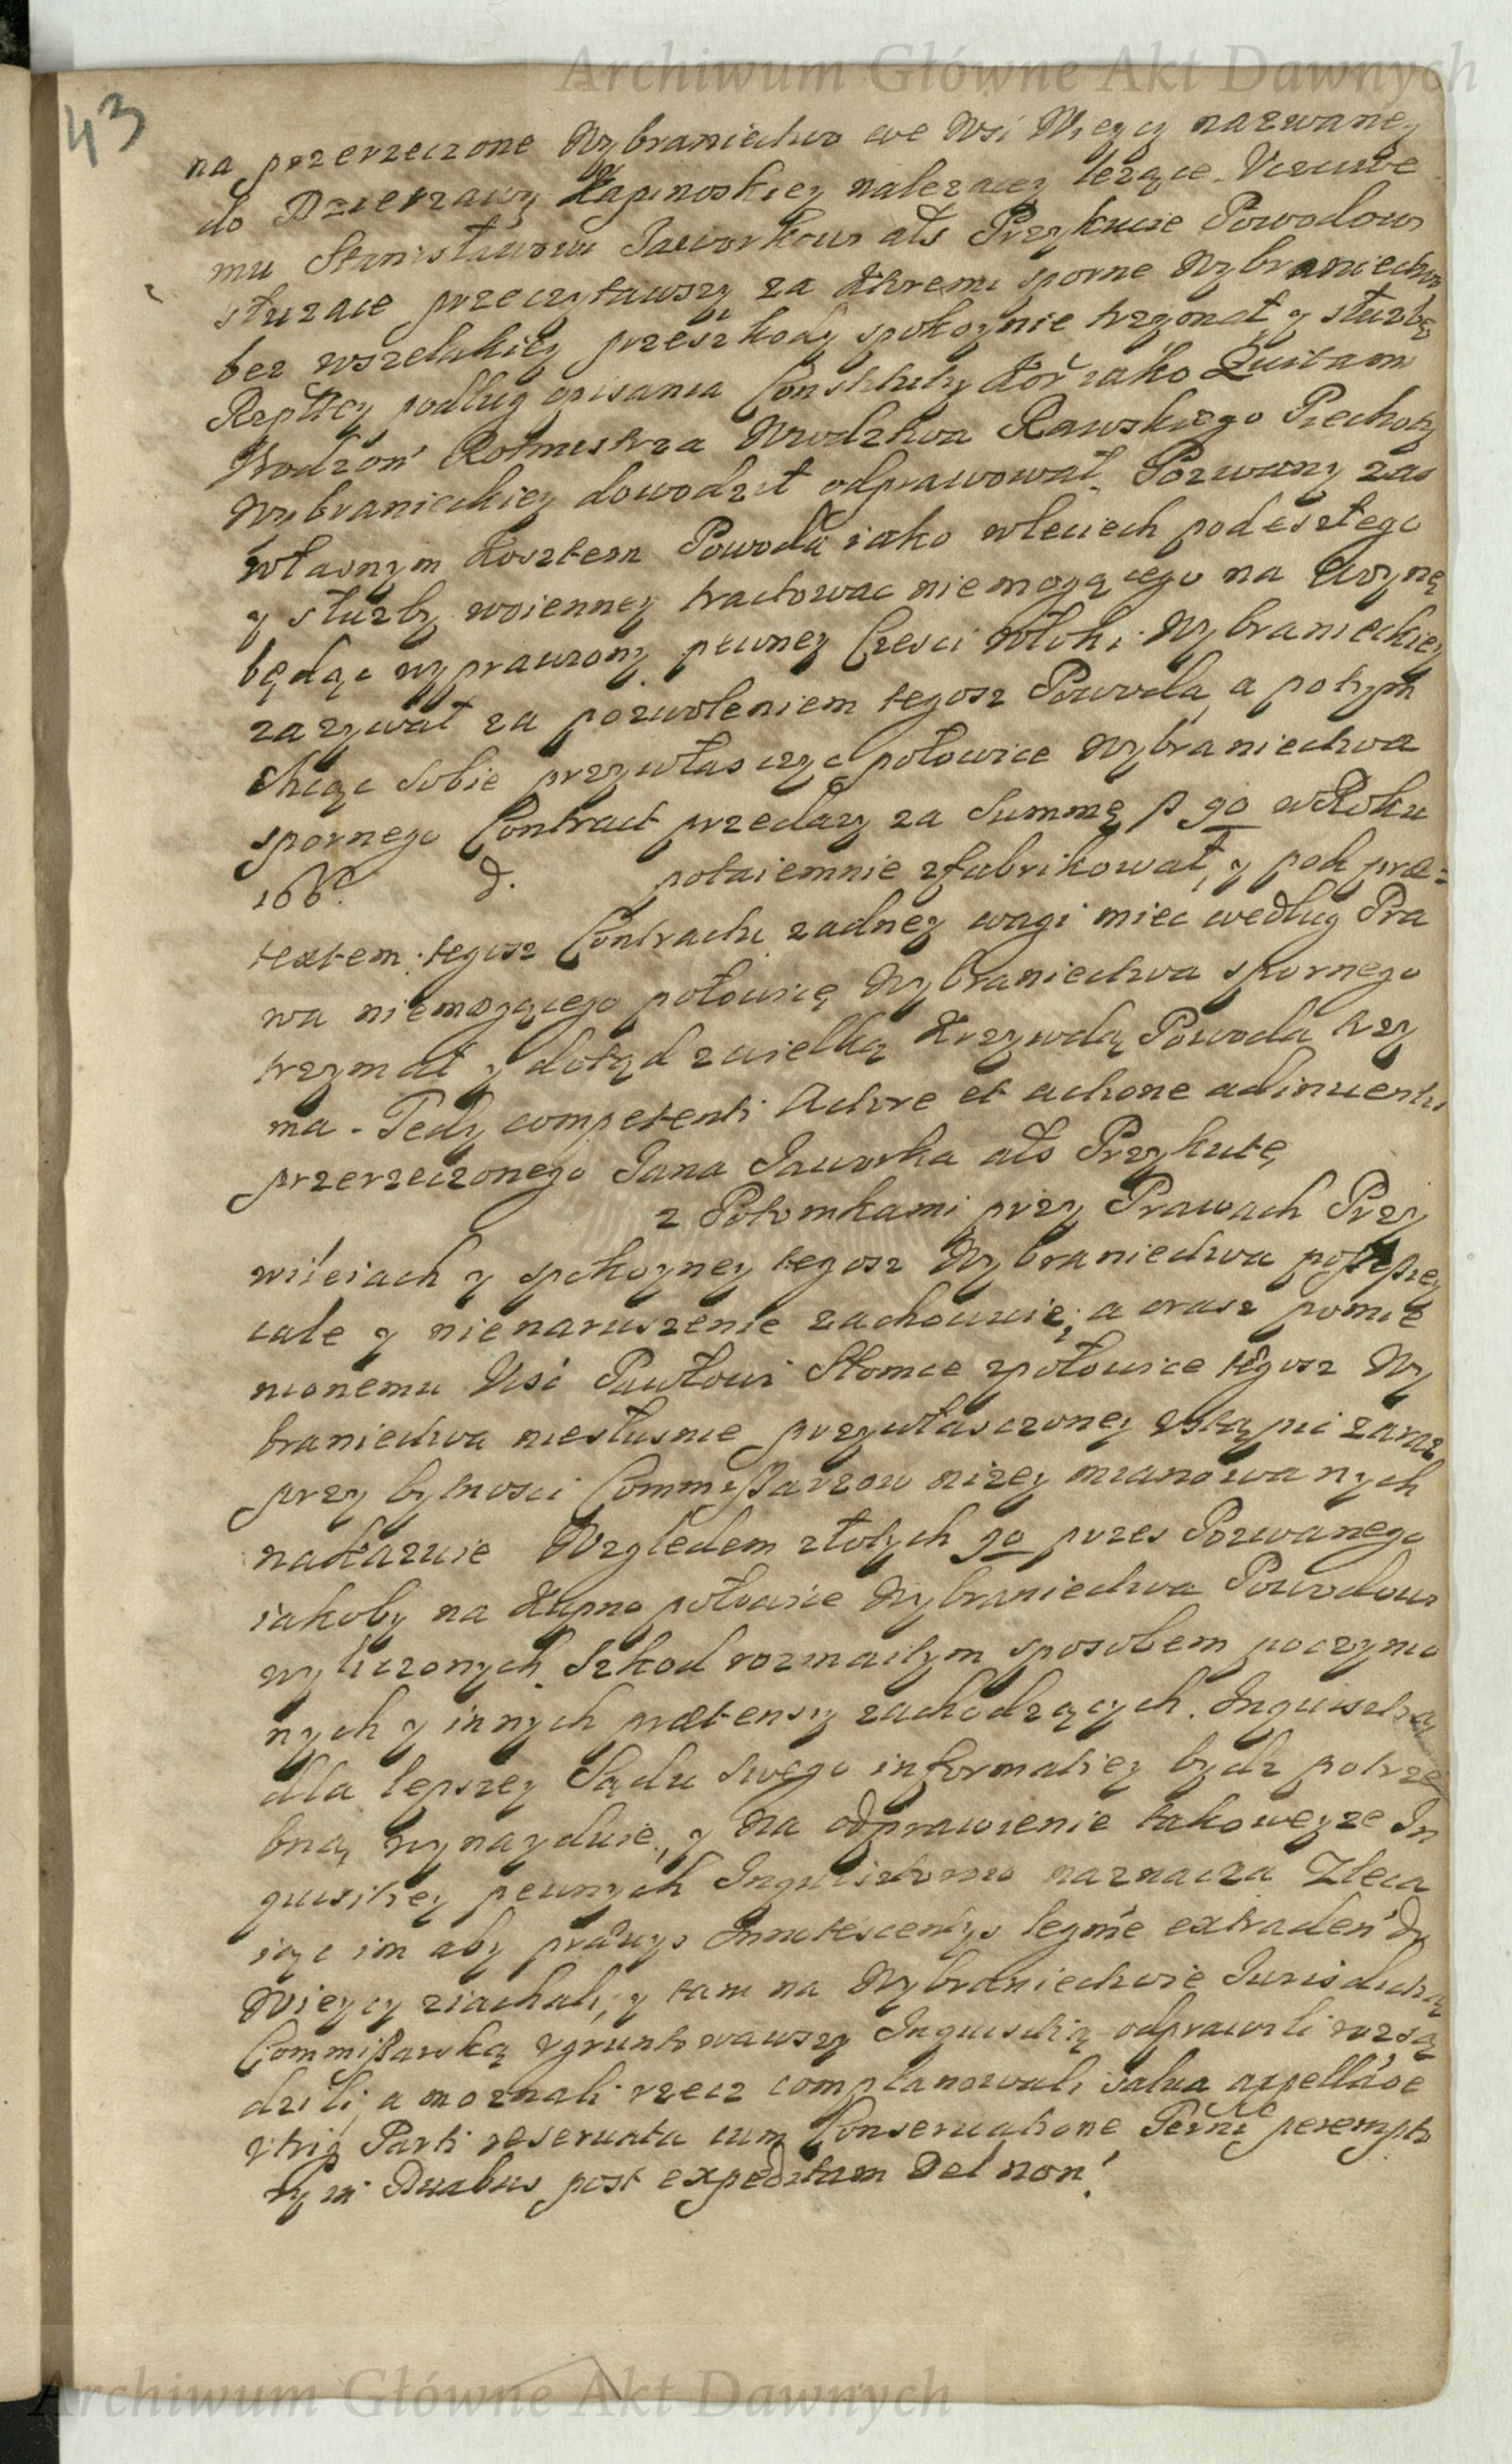 Archiwum Główne Akt Dawnych
43
na przerzeczone Wybraniectwo we Wsi Więzcz nazwaney
do Dzierzawy Łapinoskiey nalezącey lezące. Vczciwe
mu Stanisławowi Jaworkowi als Przykucie Powodowi
słuzace przeczytawszy za ktoremi sporne Wybraniectwo
bez wszelakiey przeszkody spokoynie trzymał y słuzbę
Rzpltey podług opisania Constituty Kor iako Quitam
Wrodzon Rotmistrza Wwodztwa Rawskiego Piechoty
Wybranieckiey dowodzit odprawował. Pozwany zas
własnym Kosztem Powoda iako wleciech podeszłego
y słuzby woienney tractowac niemogącego na Woynę
będąc wyprawiony pewney Częsci Włoki Wybranieckiey
zazywał za pozwoleniem tegosz Powoda, a potym
chcąc sobie przywłasczyc połowice Wybraniectwa
spornego Contract przedazy za Summę p 90 w Roku
166. d. potaiemnie zfabrikował, y pod præ=
textem tegosz Contractu zadney wagi miec według Pra
wa niemogącego połowicę Wybraniectwa spornego
trzymał y dotąd zwielką Krzywdą Powoda trzy
ma. Tedy competenti Actore et actione adinuenti
przerzeczonego Jana Jaworka als Przykutę
z Potomkami przy Prawach Przy
wileiach y spokoyney tegosz Wybraniectwa possessey
cale y nienaruszenie zachowuie; a orasz pomie
nionemu Usc Pawłowi Słomce zpołowice tegosz Wy
braniectwa niesłusnie przywłasczoney vstąpic zaraz
przy bytnosci Commissarzow nizey mianowanych
nakazuie Względem złotych 90 przes Pozwanego
iakoby na Kupno połowice Wybraniectwa Powodowi
wyliczonych. Szkod rozmaitym sposobem poczynio
nych y innych prætensiy zachodzących. Inquisitią
dla lepszey Sądu swego informatiey bydz potrze
bną wynayduie, y na odprawienie takoweyze In
quisitiey pewnych Inquisitorow naznacza Zleca
iąc im aby prævys Innotescentys legme extraden do
Więzcy ziachali, y tam na Wybraniectwie Jurisdictią
Commissarską vgruntowawszy Inquisitią odprawili rozsą
dzili, a moznali rzecz complanowali salva appellaoe
vtriq Parti reservata cum Conservatione Termi perempto
rym Duabus post expeditam Vel non.
Archiwum Główne Akt Dawnych